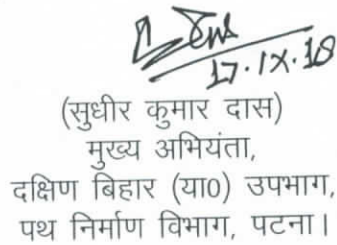 17.IX.18
(सुधीर कुमार दास)
मुख्य अभियंता,
दक्षिण बिहार (या0) उपभाग,
पथ निर्माण विभाग, पटना।